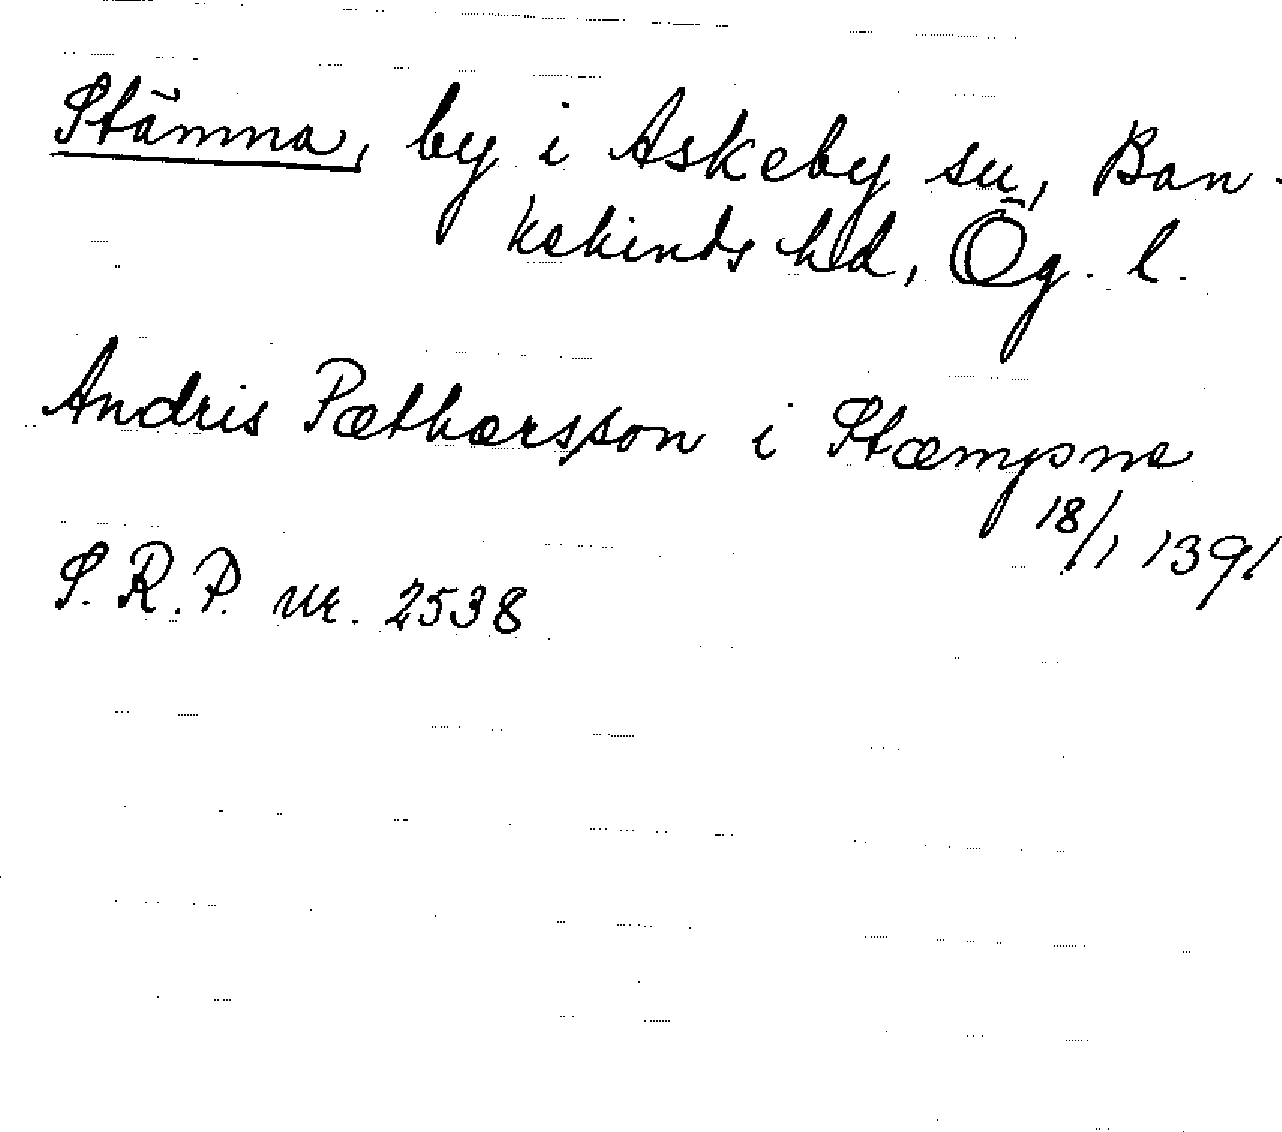 Stämna, by i Askeby sn, Ban-
kekinds hd, Ög. l.
Andris Pætharsson i Stæmpna
18/1 1391
S. R. P. nr. 2538